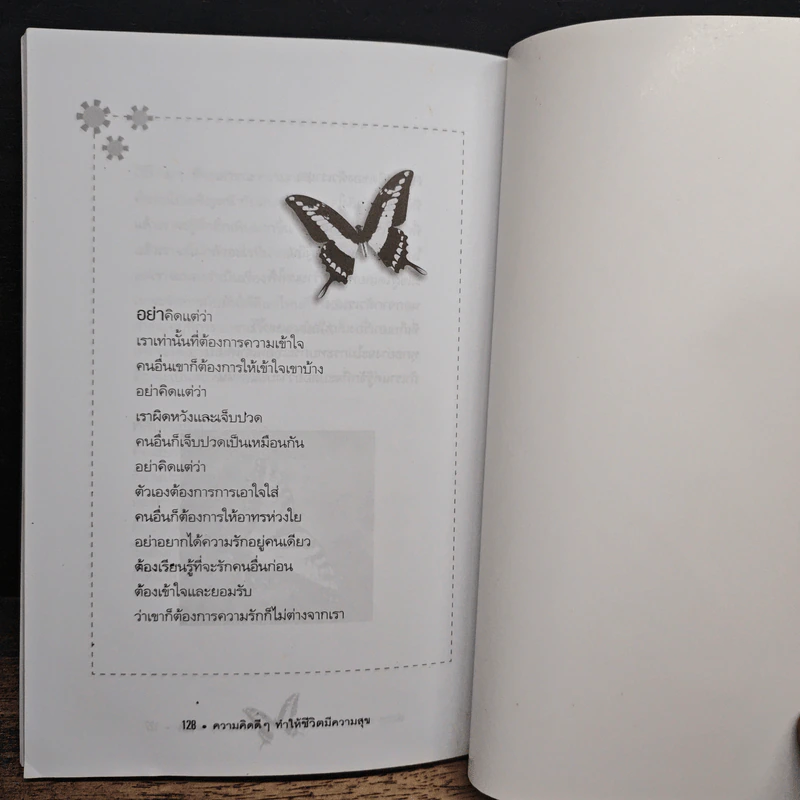 อย่าคิดแต่ว่า
เราเท่านั้นที่ต้องการความเข้าใจ
คนอื่นเขาก็ต้องการให้เข้าใจเขาบ้าง
อย่าคิดแต่ว่า
เราผิดหวังและเจ็บปวด
คนอื่นก็เจ็บปวดเป็นเหมือนกัน
อย่าคิดแต่ว่า
ตัวเองต้องการการเอาใจใส่
คนอื่นก็ต้องการให้อาทรห่วงใย
อย่าอยากได้ความรักอยู่คนเดียว
ต้องเรียนรู้ที่จะรักคนอื่นก่อน
ต้องเข้าใจและยอมรับ
ว่าเขาก็ต้องการความรักก็ไม่ต่างจากเรา
128 • ความคิดดีๆ ทำให้ชีวิตมีความสุข